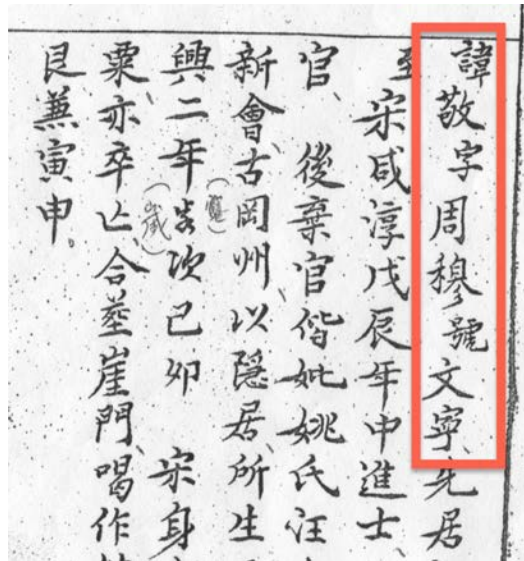 諱敬字周穆號文寧、先居
至宋咸淳戊辰年中進士
官、後棄官偕妣姚氏汪
新會古岡州、以隱居、所生
(寬)
興二年岁次己卯、宋身
(歲)
粟、亦卒仩合塟崖門、喝作
艮兼寅申。